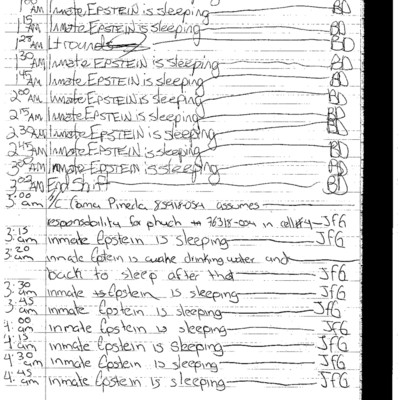 1:00 AM Inmate EPSTEIN is sleeping BD
1:15 AM Inmate EPSTEIN is sleeping BD
1:28 AM Lt rounds BD
1:30 AM Inmate EPSTEIN is sleeping BD
1:45 AM Inmate EPSTEIN is sleeping BD
2:00 AM Inmate EPSTEIN is sleeping BD
2:15 AM Inmate EPSTEIN is sleeping BD
2:30 AM Inmate EPSTEIN is sleeping BD
2:45 AM Inmate EPSTEIN is sleeping BD
3:00 AM Inmate EPSTEIN is sleeping BD
3:02 AM End Shift BD
3:00 am I/C Pineda 85418-054 assumes
responsibility for 76318-054 in cell #4 JfG
3:15 am inmate Epstein is sleeping JfG
3:20 am inmate Epstein is awake drinking water and
back to sleep after that JfG
3:30 am inmate Epstein is sleeping JfG
3:45 am inmate Epstein is sleeping JfG
4:00 am inmate Epstein is sleeping JfG
4:15 am inmate Epstein is sleeping JfG
4:30 am inmate Epstein is sleeping JfG
4:45 am inmate Epstein is sleeping JfG